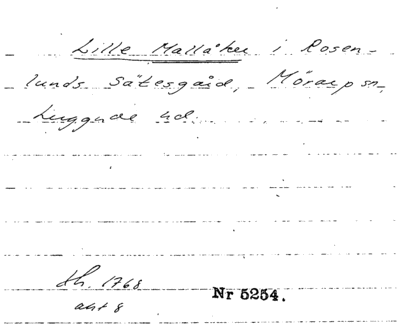 Lille Mallåker i Rosen-
lunds Sätesgård, Mörarp sn,
Luggude hd.
Lh. 1768
akt 8
Nr 5254.